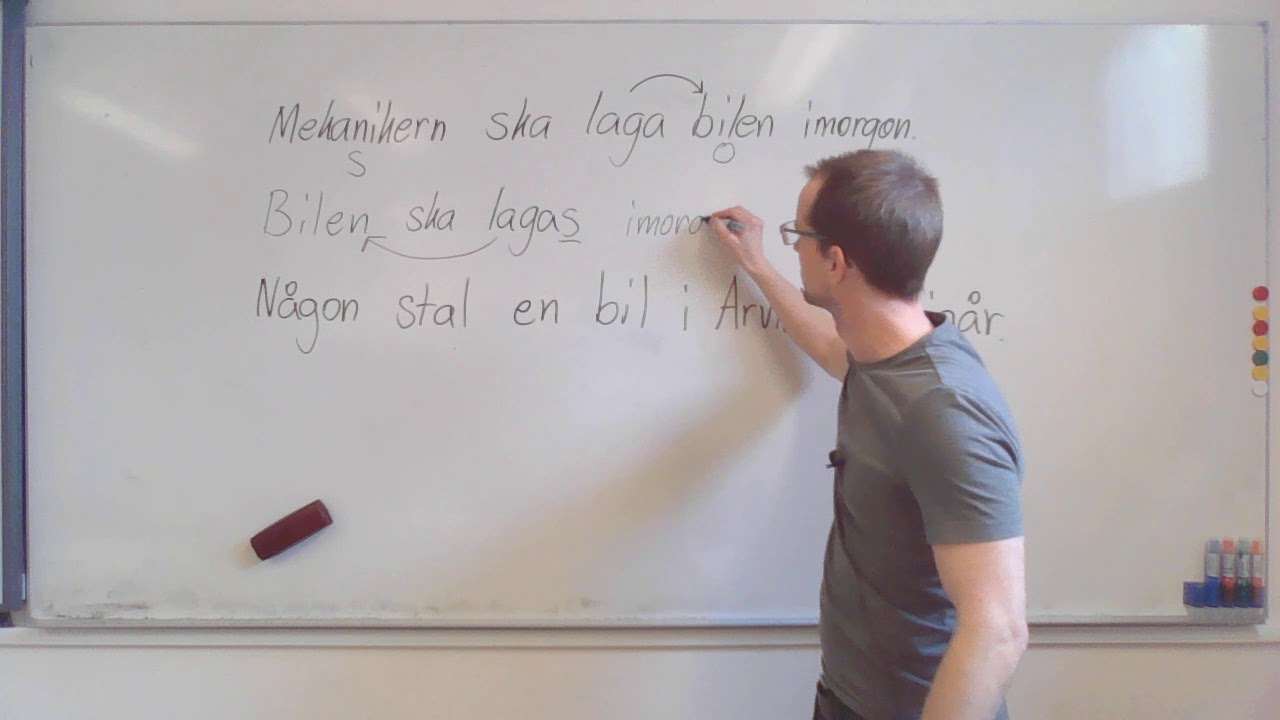 Mekanikern ska laga bilen imorgon.
S O
Bilen ska lagas imorg
Någon stal en bil i igår.